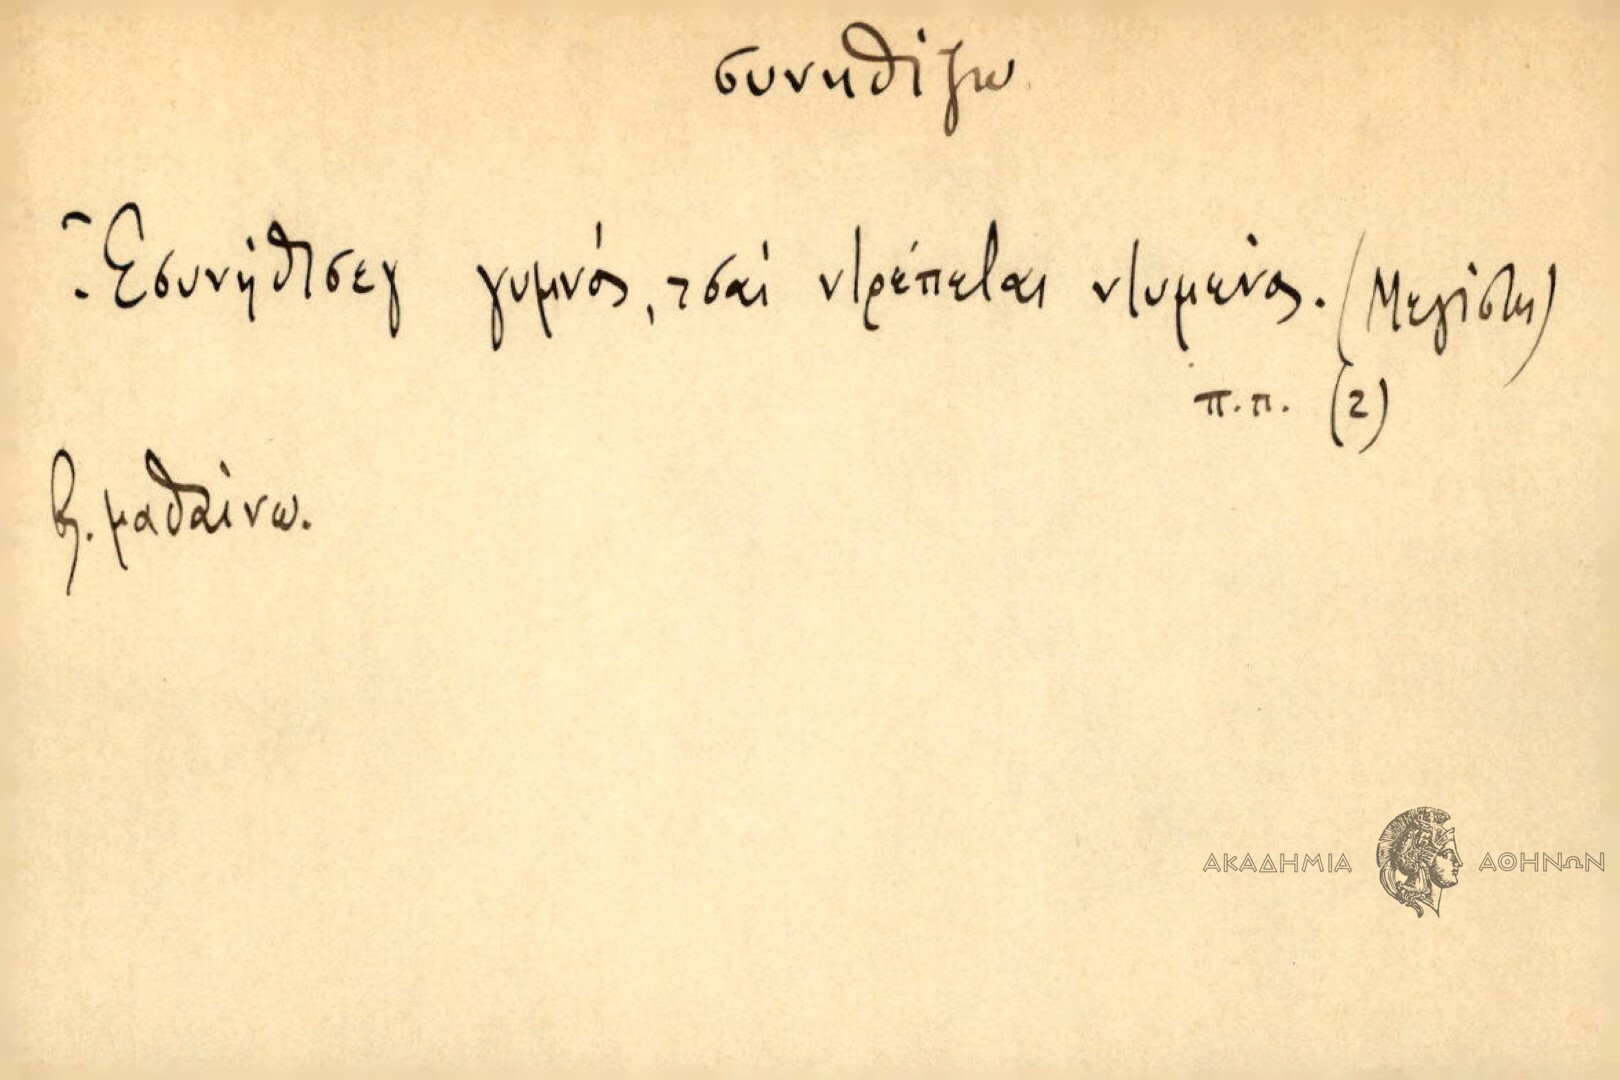 συνηθίζω
Ἐσυνήθισεγ γυμνός, τσαί ντρέπεται ντυμένος. (Μεγίστη)
π.π. (2)
β. μαθαίνω.
ΑΚΑΔΗΜΙΑ ΑΘΗΝΩΝ